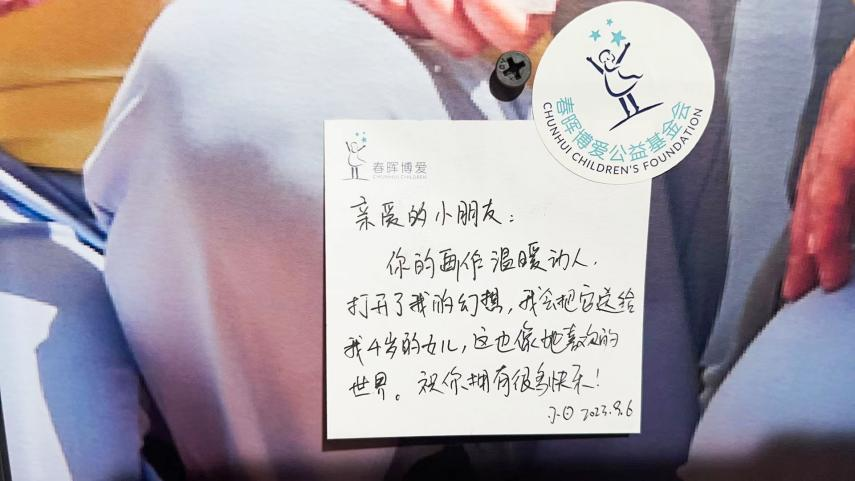 春晖博爱公益基金会
CHUNHUI CHILDREN'S FOUNDATION
春晖博爱
CHUNHUI CHILDREN
亲爱的小朋友：
你的画作温暖动人，
打开了我的幻想，我会把它送给
我4岁的女儿，这也像她喜欢的
世界。祝你拥有很多快乐！
2023.9.6